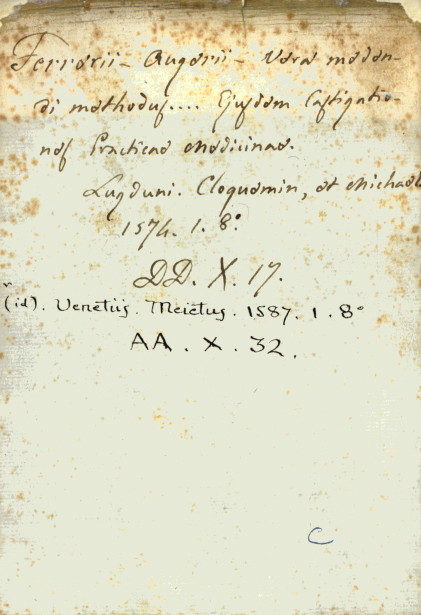 Ferrerii - Augerii - Vera meden-
di methodus.... Ejusdem Castigatio-
nes Practicae Medicinae.
Lugduni. Cloquemin, et Michael
1574. 1. 8º
DD. X. 17.
(id). Venetiis. Meietus. 1587. 1. 8º
AA. X. 32.
C